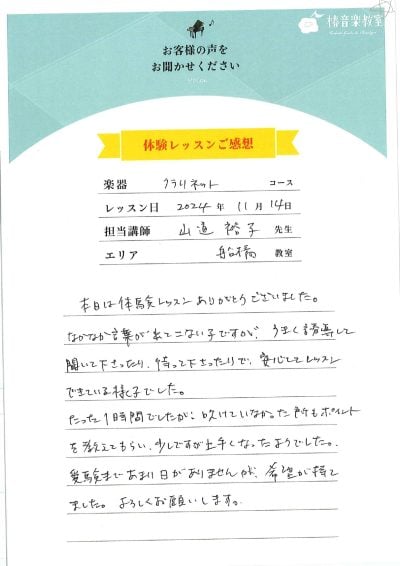 椿音楽教室
お客様の声を
お聞かせください
体験レッスンご感想
楽器 クラリネット コース
レッスン日 2024年 11月 14日
担当講師 山道 裕子 先生
エリア 船橋 教室
本日は体験レッスンありがとうございました。
なかなか言葉が出てこない子ですが、うまく誘導して
聞いて下さったり、待って下さったりで、安心してレッスン
できている様子でした。
たった1時間でしたが、吹けていなかった所もポイント
を教えてもらい、少しですが上手くなったようでした。
受験まであまり日がありませんが、希望が持て
ました。よろしくお願いします。